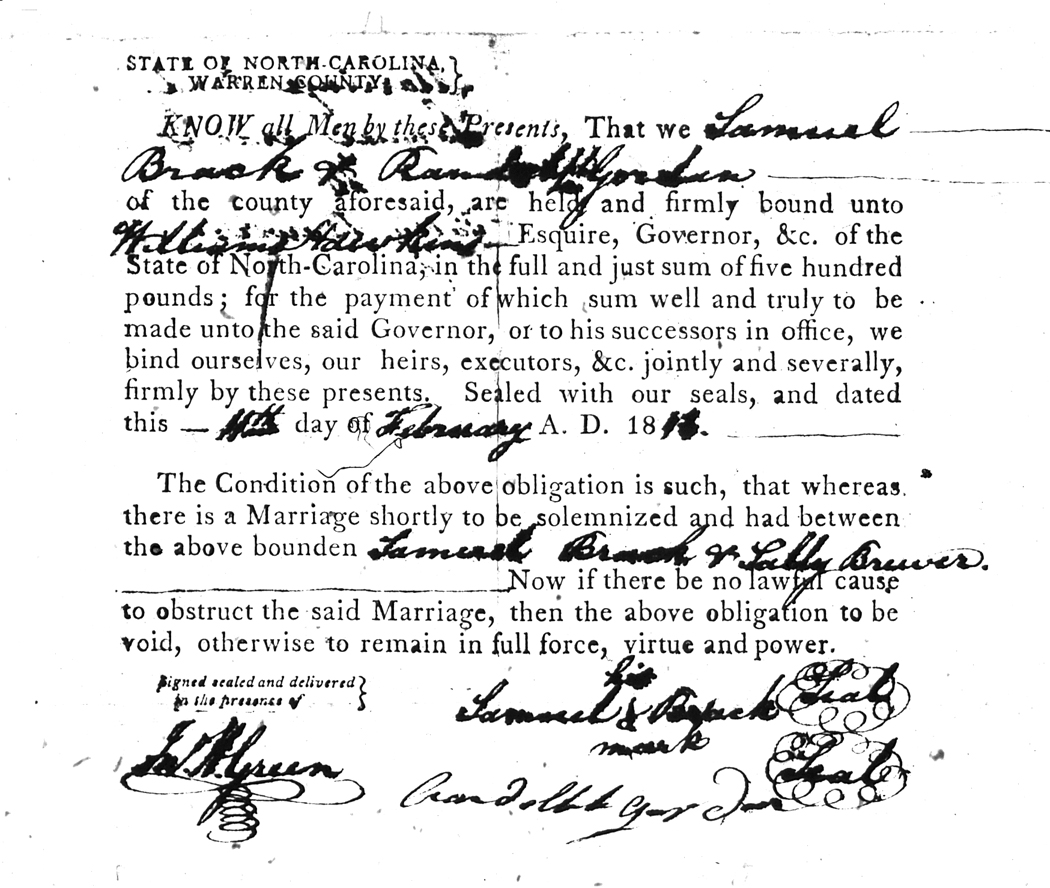 STATE OF NORTH-CAROLINA,
WARREN COUNTY.
KNOW all Men by these Presents, That we Samuel
Brack & Randolph Gordon
of the county aforesaid, are held and firmly bound unto
William Hawkins Esquire, Governor, &c. of the
State of North-Carolina, in the full and just sum of five hundred
pounds; for the payment of which sum well and truly to be
made unto the said Governor, or to his successors in office, we
bind ourselves, our heirs, executors, &c. jointly and severally,
firmly by these presents. Sealed with our seals, and dated
this 11th day of February A. D. 18
The Condition of the above obligation is such, that whereas
there is a Marriage shortly to be solemnized and had between
the above bounden Samuel Brack & Sally Brewer.
Now if there be no lawful cause
to obstruct the said Marriage, then the above obligation to be
void, otherwise to remain in full force, virtue and power.
Signed sealed and delivered
in the presence of
his
Samuel Brack Seal
mark
Green
Seal
Randolph Gordon